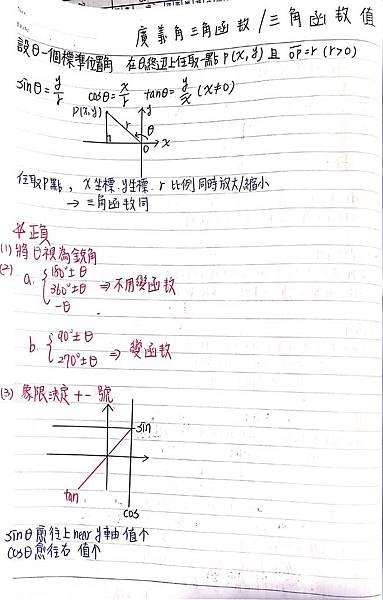 廣義角三角函數/三角函數值
設θ一個標準位置角 在θ終边上任取一點P(x,y)且 OP=r (r>0)
sinθ=y/r cosθ=x/r tanθ=y/x (x≠0)
P(x,y) r θ y
O x
任取P點, x坐標.y坐標. r 比例同時放大/縮小
→ 三角函數同
(1) 將θ視為銳角
(2) a. { 180°±θ
360°±θ ⇒ 不用變函數
-θ
b. { 90°±θ
270°±θ ⇒ 變函數
(3) 象限決定+-號
sin
tan
cos
sinθ愈往上near y軸值↑
cosθ愈往右 值↑